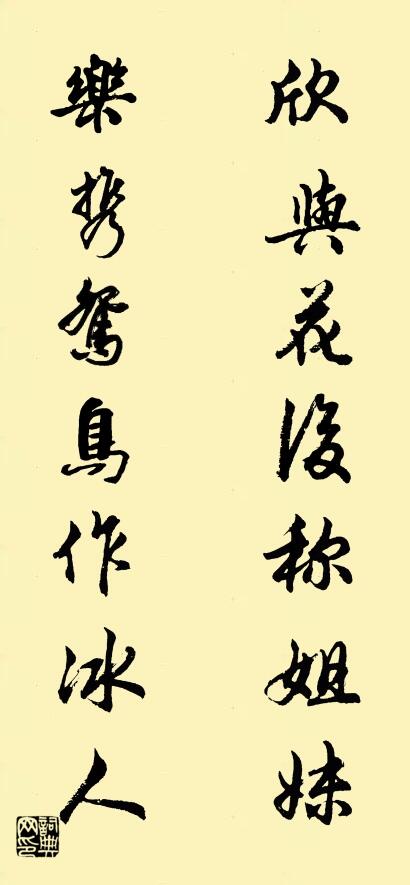 欣與花後称姐妹
樂携鴛鳥作冰人
詞典网印